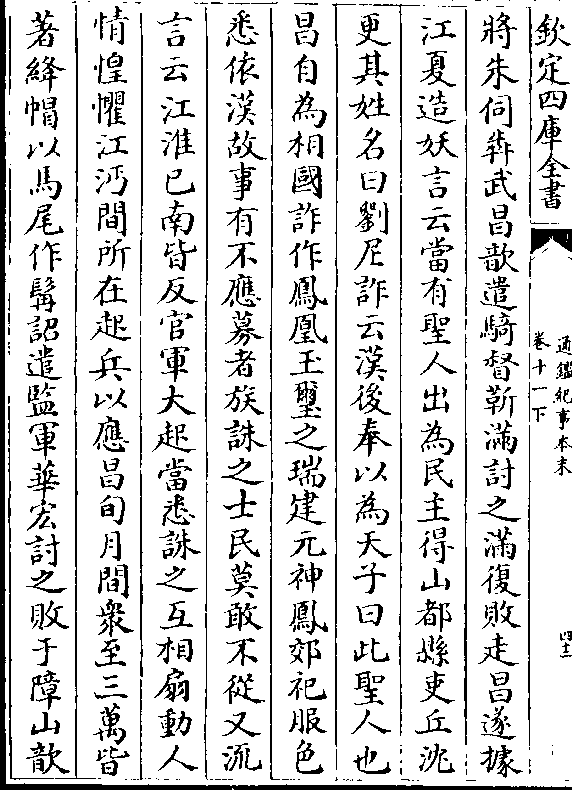 欽定四庫全書
通鑑紀事本末
卷十一下
四十二
將朱伺犇武昌歆遣騎督靳滿討之滿復敗走昌遂據
江夏造妖言云當有聖人出為民主得山都縣吏丘沈
更其姓名曰劉尼詐云漢後奉以為天子曰此聖人也
昌自為相國詐作鳳凰玉璽之瑞建元神鳳郊祀服色
悉依漢故事有不應募者族誅之士民莫敢不從又流
言云江淮已南皆反官軍大起當悉誅之互相扇動人
情惶懼江沔間所在起兵以應昌旬月間衆至三萬皆
著絳帽以馬尾作髯詔遣監軍華宏討之敗于障山歆